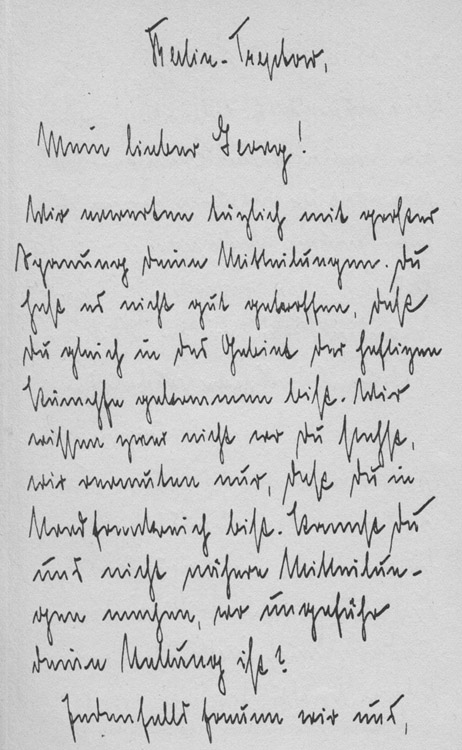 Berlin-Treptow,
Mein lieber Georg!
Wir erwarten täglich mit großer
Spannung deine Mitteilungen. Du
hast es nicht gut getroffen, daß
Du gleich in das Gebiet der heftigen
Kämpfe gekommen bist. Wir
wissen zwar nicht wo Du stehst,
wir vermuten nur, daß Du in
Nordfrankreich bist. Kannst Du
uns nicht nähere Mitteilun-
gen machen, wo ungefähr
deine Stellung ist?
Jedenfalls freuen wir uns,